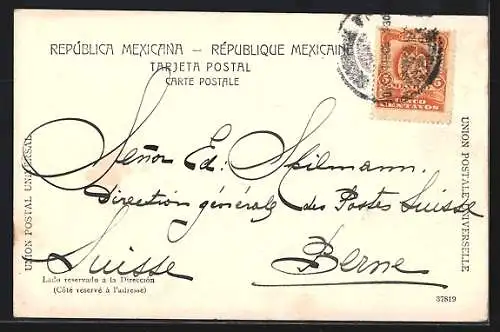 REPÚBLICA MEXICANA — RÉPUBLIQUE MEXICAINE
TARJETA POSTAL
CARTE POSTALE
CINCO
CENTAVOS
UNION POSTAL UNIVERSAL
UNION POSTALE UNIVERSELLE
Señor Ed: Spilmann.
Direction générale des Postes Suisse
Suisse Berne
Lado reservado a la Dirección
(Côté reservé à l'adresse)
37819